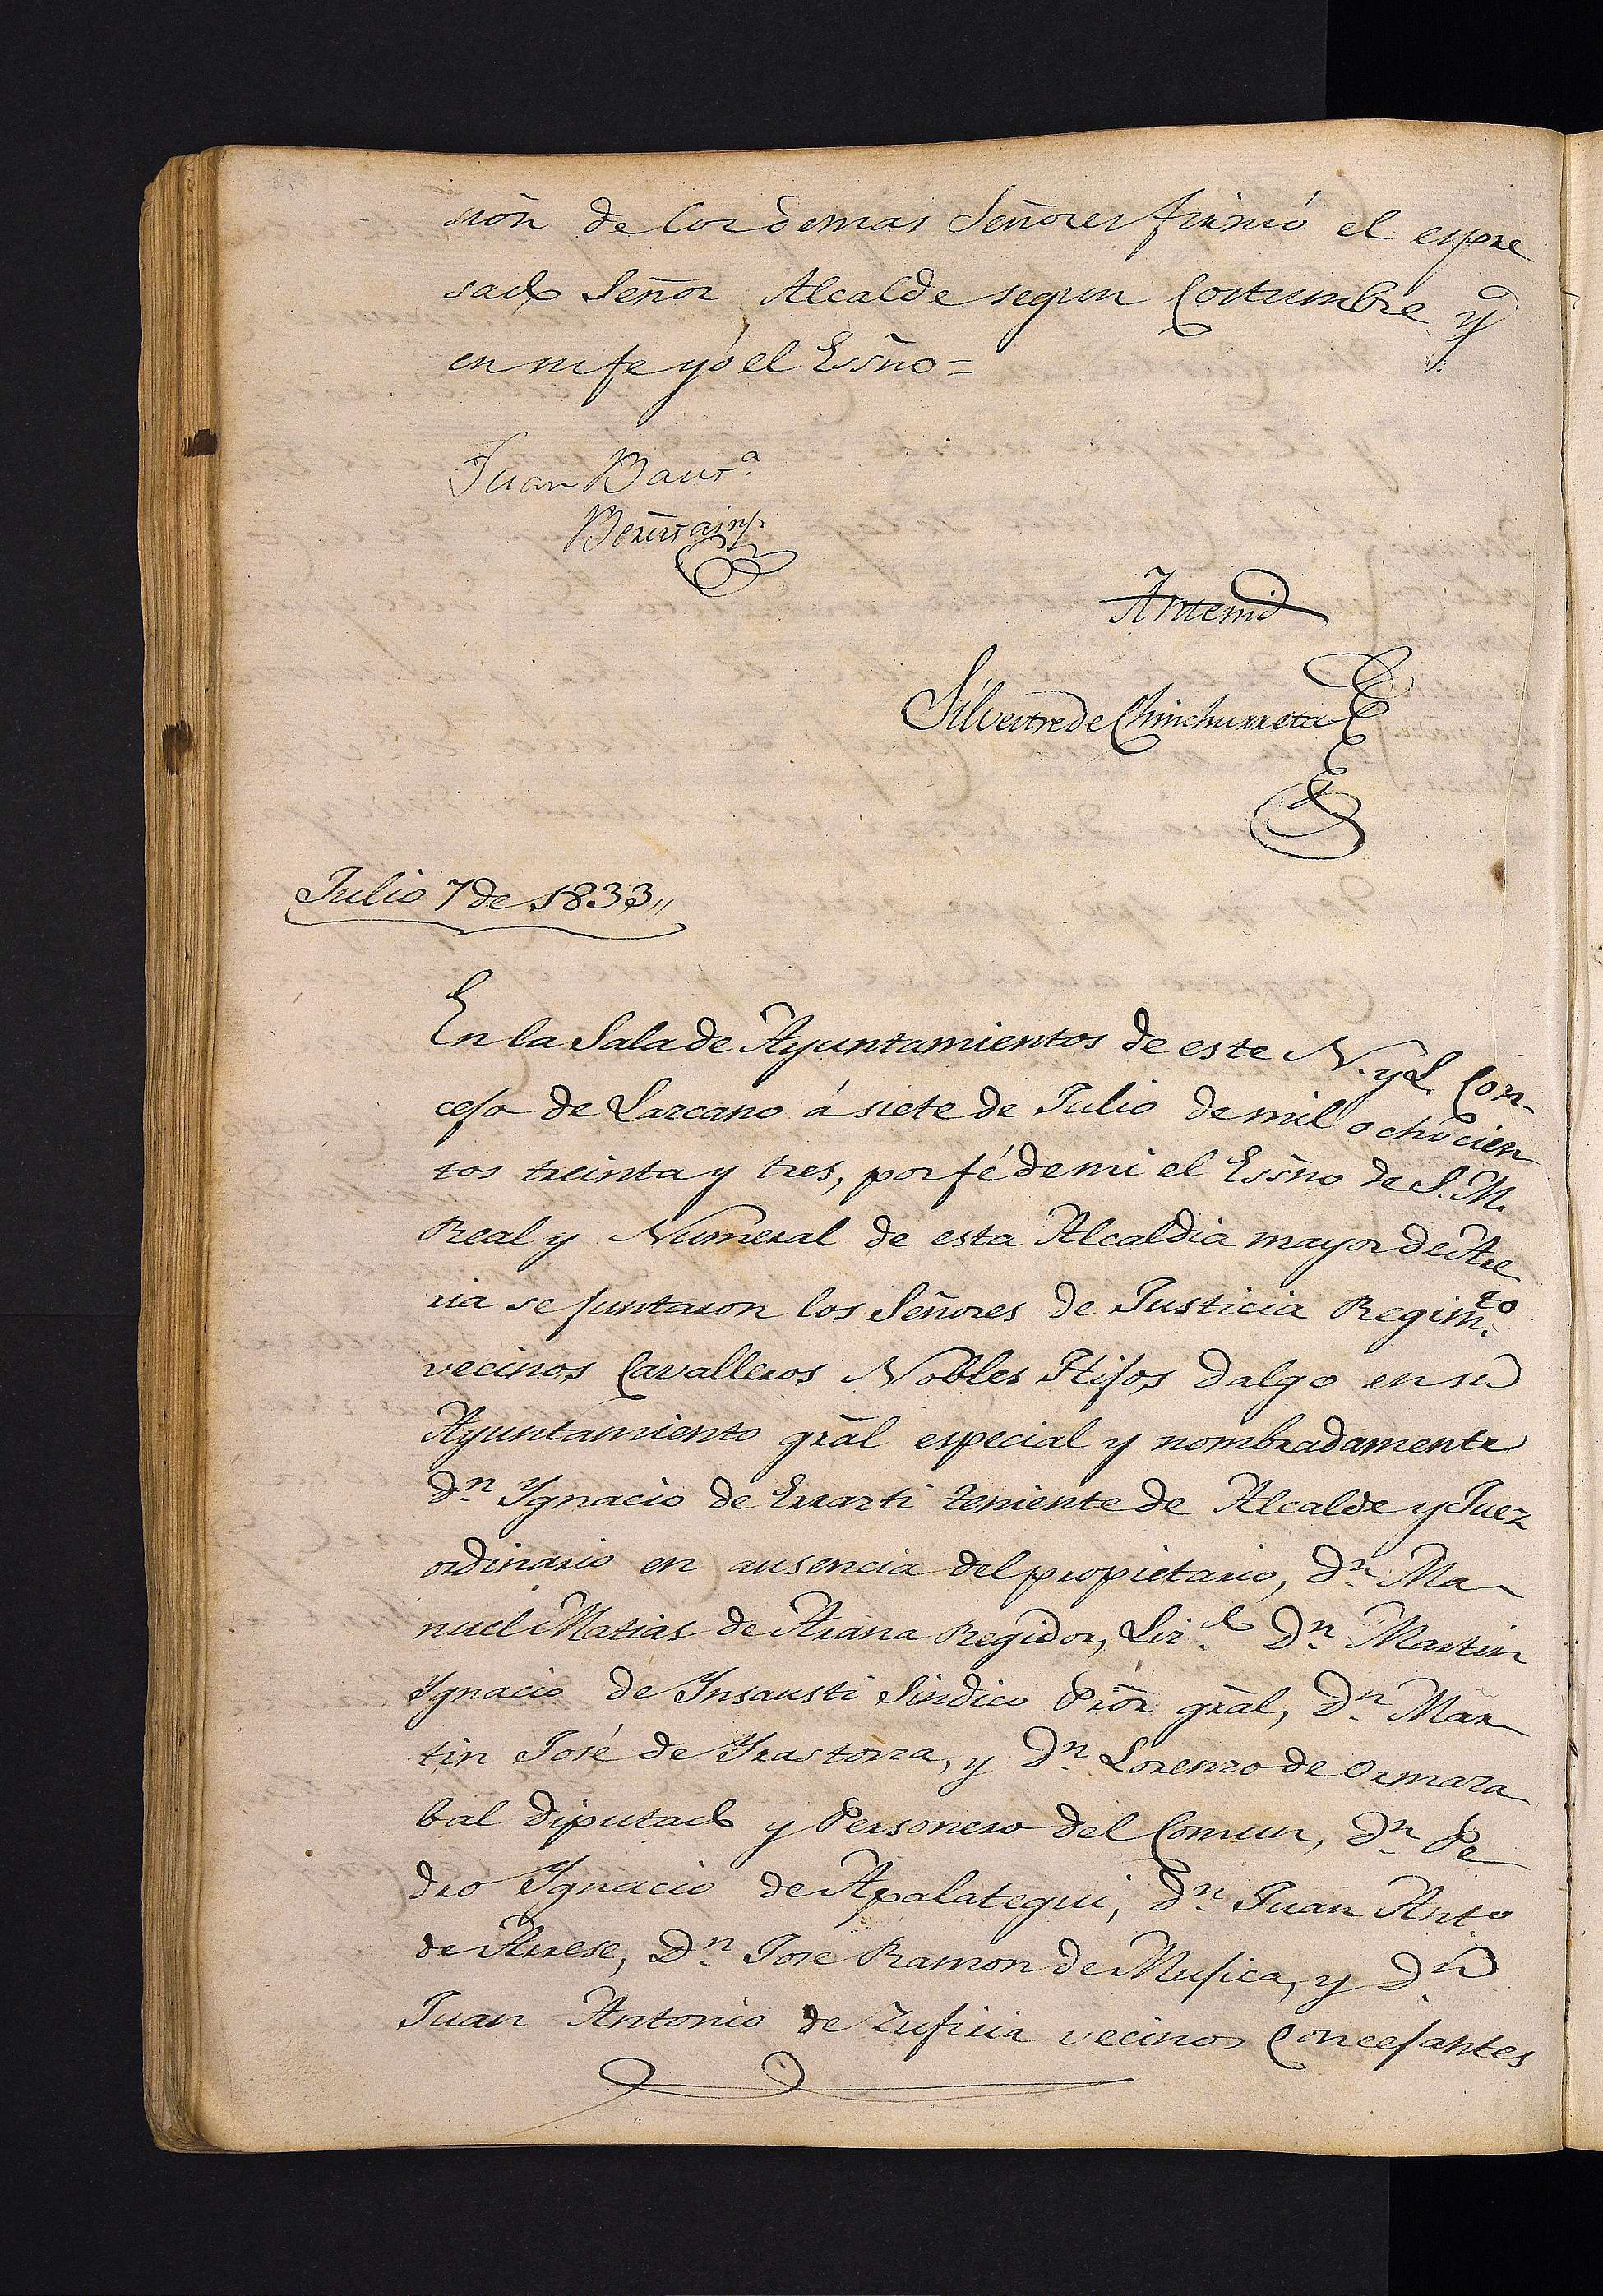 sion de los demas Señores firmó el espre
sado Señor Alcalde segun Costumbre y
en mi fe yó el Essno =
Juan Baut.ª
Berasain
Antemi
Silvestre de Chinchurreta
Julio 7 de 1833,,
En la Sala de Ayuntamientos de este N. y L. Con-
cejo de Lazcano á siete de Julio de mil ochocien
tos treinta y tres, por fé de mi el Essno de S. M.
Real y Numeral de esta Alcaldia mayor de Are
ria se juntaron los Señores de Justicia Regim.to
vecinos Cavalleros Nobles Hijos dalgo en su
Ayuntamiento grãl especial y nombradamente
D.n Ygnacio de Errarti teniente de Alcalde y Juez
ordinario en ausencia del propietario, D.n Ma
nuel Matias de Arana Regidor, Liz.do D.n Martin
Ygnacio de Insausti Sindico Prõr grãl, D.n Mar
tin José de Yrastorza, y D.n Lorenzo de Ormaza
bal diputado y Personero del Comun, D.n Pe
dro Ygnacio de Apalategui, D.n Juan Anto
de Arrese, D.n Jose Ramon de Mujica, y D.n
Juan Antonio de Zufiria vecinos Concejantes